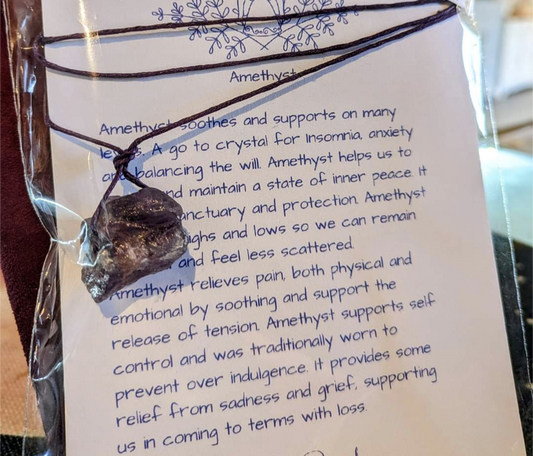 Amethyst
Amethyst soothes and supports on many
A go to crystal for insomnia, anxiety
balancing the will. Amethyst helps us to
and maintain a state of inner peace It
sanctuary and protection. Amethyst
highs and lows so we can remain
and feel less scattered
Amethyst relieves pain, both physical and
emotional by soothing and support the
release of tension. Amethyst supports self
control and was traditionally worn to
prevent over indulgence. It provides some
relief from sadness and grief, supporting
us in coming to terms with loss.